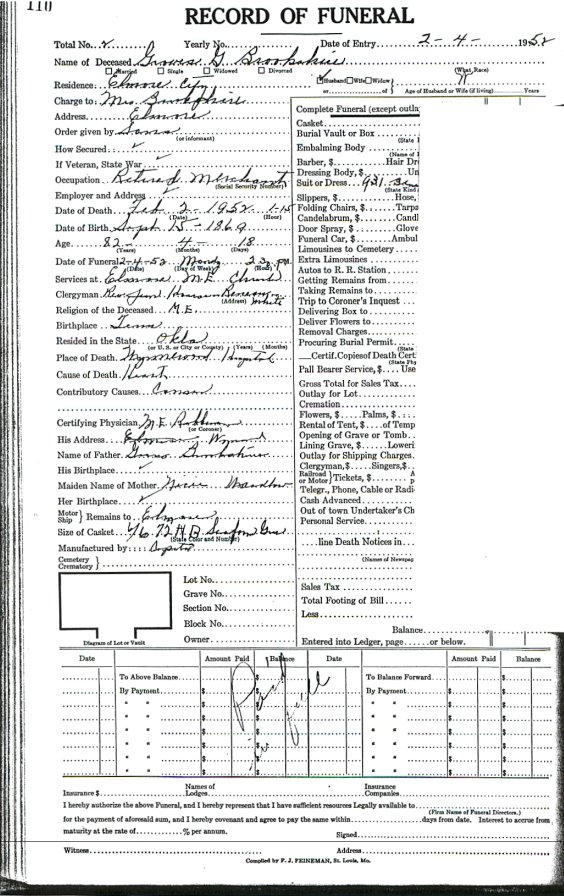 110
RECORD OF FUNERAL
Total No. Yearly No. Date of Entry 2-4- 1952
Name of Deceased G. Brookshire
Married Single Widowed Divorced (What Race)
Residence: Elmore City Husband Wife Widow W
or of Age of Husband or Wife (if living) Years
Charge to: Mrs. Brookshire
Address Elmore
Order given by Same
(or informant)
How Secured
If Veteran, State War
Occupation Retired Merchant
(Social Security Number)
Employer and Address
Date of Death Feb 2 1952 1:15
(Date) (Hour)
Date of Birth Sept 15-1869
Age 82 4 18
(Years) (Months) (Days)
Date of Funeral 2-4-52 Mond 2:30 PM
(Date) (Day of Week) (Hour)
Services at Elmore M.E. Church
Clergyman Rev.
(Address) White
Religion of the Deceased M.E.
Birthplace Tenn
Resided in the State Okla
(or U. S. or City or County) (Years) (Months)
Place of Death Wynnewood Hospital
Cause of Death Heart
Contributory Causes Cancer
Certifying Physician M.E.
(or Coroner)
His Address Elmore Wynnewood
Name of Father Brookshire
His Birthplace
Maiden Name of Mother
Her Birthplace
Motor Ship Remains to Elmore
Size of Casket 4/6.72 H.B.
(State Color and Number)
Manufactured by
Cemetery
Crematory
Diagram of Lot or Vault
Lot No.
Grave No.
Section No.
Block No.
Owner
Complete Funeral (except outla
Casket
Burial Vault or Box
(State
Embalming Body
(Name of
Barber, $ Hair Dr
Dressing Body, $ Un
Suit or Dress 921
(State Kind
Slippers, $ Hose,
Folding Chairs, $ Tarpa
Candelabrum, $ Candl
Door Spray, $ Glove
Funeral Car, $ Ambul
Limousines to Cemetery
Extra Limousines
Autos to R. R. Station
Getting Remains from
Taking Remains to
Trip to Coroner's Inquest
Delivering Box to
Deliver Flowers to
Removal Charges
Procuring Burial Permit
(State
Certif. Copies of Death Cert
(State Phy
Pall Bearer Service, $ Use
Gross Total for Sales Tax
Outlay for Lot
Cremation
Flowers, $ Palms, $
Rental of Tent, $ of Temp
Opening of Grave or Tomb
Lining Grave, $ Loweri
Outlay for Shipping Charges
Clergyman, $ Singers, $
Railroad or Motor Tickets, $ A p
Telegr., Phone, Cable or Radi
Cash Advanced
Out of town Undertaker's Ch
Personal Service
line Death Notices in
(Names of Newspap
Sales Tax
Total Footing of Bill
Less
Balance
Entered into Ledger, page or below.
Date Amount Paid Balance Date Amount Paid Balance
To Above Balance $ $ To Balance Forward $ $
By Payment $ $ By Payment $ $
" " $ $ " " $ $
" " $ $ " " $ $
" " $ $ " " $ $
" " $ $ " " $ $
" " $ $ " " $ $
" " $ $ " " $ $
Paid in full
Insurance $ Names of Lodges Insurance Companies
I hereby authorize the above Funeral, and I hereby represent that I have sufficient resources Legally available to
(Firm Name of Funeral Directors.)
for the payment of aforesaid sum, and I hereby covenant and agree to pay the same within days from date. Interest to accrue from
maturity at the rate of % per annum.
Signed
Witness Address
Compiled by F. J. FEINEMAN, St. Louis, Mo.